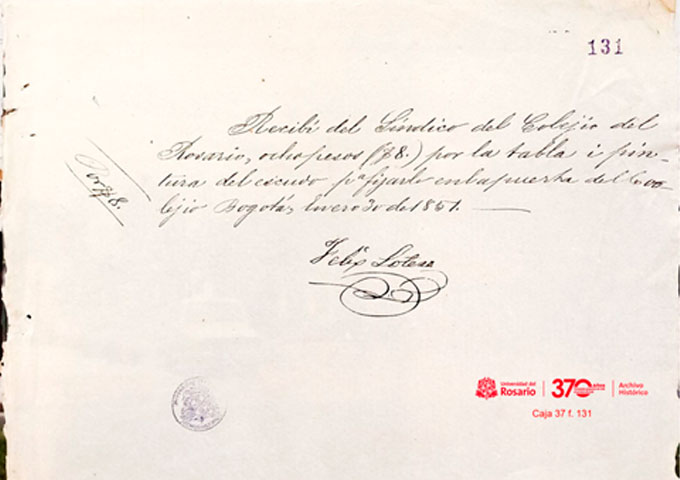 131
Recibí del Síndico del Colejio del
Rosario, ocho pesos ($8.) por la tabla i pin-
tura del escudo pa fijarlo en la puerta del Co-
lejio Bogotá, Enero 30 de 1851.
Por $8.
Felix
Universidad del
Rosario
370 años
Archivo
Histórico
Caja 37 f. 131